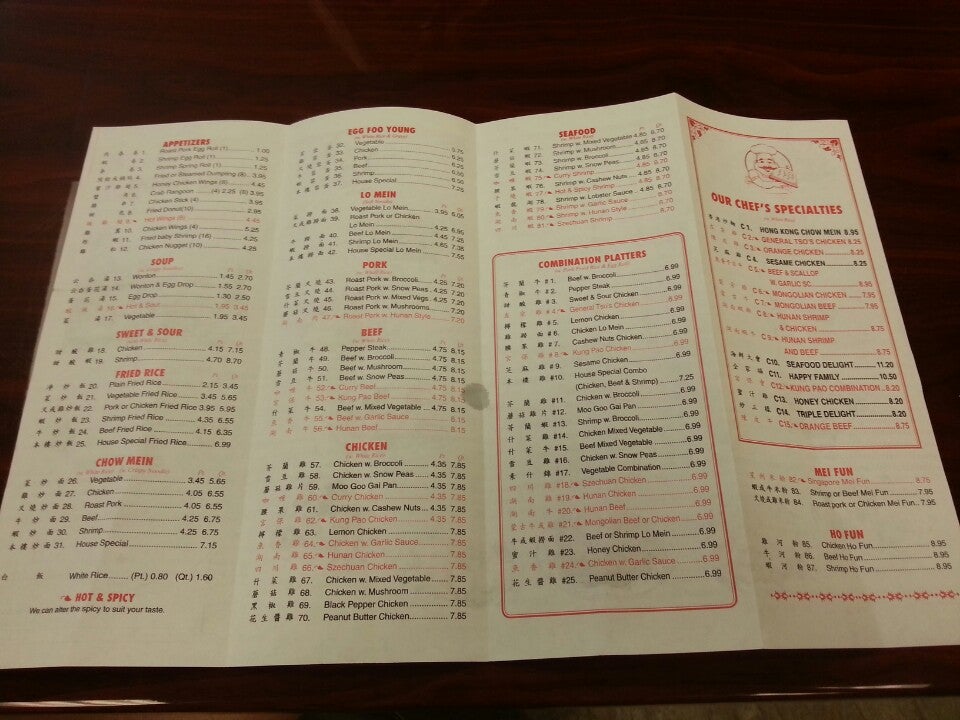 APPETIZERS
1. Roast Pork Egg Roll (1) 1.00
2. Shrimp Egg Roll (1) 1.25
3. Shrimp Spring Roll (1) 1.25
4. Fried or Steamed Dumpling (8) 3.95
5. Honey Chicken Wings (8) 4.45
6. Crab Rangoon (4) 2.25 (8) 3.95
7. Chicken Stick (4) 3.95
8. Fried Donut(10) 2.95
Hot Wings (8) 4.45
10. Chicken Wings (4) 5.25
11. Fried baby Shrimp (16) 4.25
12. Chicken Nugget (10) 4.25
SOUP
(w. Crispy Noodles) Pt. Qt.
13. Wonton 1.45 2.70
14. Wonton & Egg Drop 1.55 2.70
15. Egg Drop 1.30 2.50
16. Hot & Sour 1.95 3.45
17. Vegetable 1.95 3.45
SWEET & SOUR
(w. White Rice) Pt. Qt.
甜酸雞 18. Chicken 4.15 7.15
甜酸蝦 19. Shrimp 4.70 8.70
FRIED RICE
Pt. Qt.
淨炒飯 20. Plain Fried Rice 2.15 3.45
菜炒飯 21. Vegetable Fried Rice 3.45 5.65
叉或雞炒飯 22. Pork or Chicken Fried Rice 3.95 5.95
蝦炒飯 23. Shrimp Fried Rice 4.35 6.55
牛炒飯 24. Beef Fried Rice 4.15 6.35
本樓炒飯 25. House Special Fried Rice 6.99
CHOW MEIN
(w. White Rice & Crispy Noodles) Pt. Qt.
菜炒面 26. Vegetable 3.45 5.65
雞炒面 27. Chicken 4.05 6.55
叉燒炒面 28. Roast Pork 4.05 6.55
牛炒面 29. Beef 4.25 6.75
蝦炒面 30. Shrimp 4.25 6.75
本樓炒面 31. House Special 7.15
白飯 White Rice (Pt.) 0.80 (Qt.) 1.60
HOT & SPICY
We can alter the spicy to suit your taste.
EGG FOO YOUNG
(w. White Rice & Gravy)
Vegetable 5.75
Chicken
Pork
Beef
Shrimp
House Special
LO MEIN
(Soft Noodles) Pt. Qt.
38. Vegetable Lo Mein 3.95 6.05
39. Roast Pork or Chicken
Lo Mein
40. Beef Lo Mein 4.45 7.25
41. Shrimp Lo Mein
42. House Special Lo Mein 7.65
PORK
(w. White Rice) Pt. Qt.
43. Roast Pork w. Broccoli 4.20 7.20
44. Roast Pork w. Snow Peas 4.25 7.20
45. Roast Pork w. Mixed Vegs. 4.25 7.20
46. Roast Pork w. Mushrooms 4.20 7.20
47. Roast Pork w. Hunan Style 7.20
BEEF
(w. White Rice) Pt. Qt.
青椒牛 48. Pepper Steak 4.75 8.15
芥蘭牛 49. Beef w. Broccoli 4.75 8.15
蘑菇牛 50. Beef w. Mushroom 4.75 8.15
雪豆牛 51. Beef w. Snow Peas 4.75 8.15
52. Curry Beef 4.75 8.15
53. Kung Pao Beef 4.75 8.15
什菜牛 54. Beef w. Mixed Vegetable 4.75 8.15
55. Beef w. Garlic Sauce 4.75 8.15
56. Hunan Beef 4.75 8.15
CHICKEN
(w. White Rice) Pt. Qt.
芥蘭雞 57. Chicken w. Broccoli 4.35 7.85
雪豆雞 58. Chicken w. Snow Peas 4.35 7.85
蘑菇雞片 59. Moo Goo Gai Pan 4.35 7.85
咖喱雞 60. Curry Chicken 4.35 7.85
腰果雞 61. Chicken w. Cashew Nuts 4.35 7.85
宮保雞 62. Kung Pao Chicken 4.35 7.85
檸檬雞 63. Lemon Chicken 7.85
魚香雞 64. Chicken w. Garlic Sauce 7.85
湖南雞 65. Hunan Chicken 7.85
四川雞 66. Szechuan Chicken 7.85
什菜雞 67. Chicken w. Mixed Vegetable 7.85
蘑菇雞 68. Chicken w. Mushroom 7.85
黑椒雞 69. Black Pepper Chicken 7.85
花生醬雞 70. Peanut Butter Chicken 7.85
SEAFOOD
(w. White Rice) Pt. Qt.
71. Shrimp w. Mixed Vegetable 4.85 8.70
72. Shrimp w. Mushroom 4.85 8.70
73. Shrimp w. Broccoli 4.85 8.70
74. Shrimp w. Snow Peas 4.85 8.70
75. Curry Shrimp 4.85 8.70
76. Shrimp w. Cashew Nuts 4.85 8.70
77. Hot & Spicy Shrimp 4.85 8.70
78. Shrimp w. Lobster Sauce 4.85 8.70
79. Shrimp w. Garlic Sauce 4.85 8.70
80. Shrimp w. Hunan Style 8.70
81. Szechuan Shrimp 8.70
COMBINATION PLATTERS
(w. Pork Fried Rice & Egg Roll)
芥蘭牛 #1. Beef w. Broccoli 6.99
青椒牛 #2. Pepper Steak 6.99
甜酸雞 #3. Sweet & Sour Chicken 6.99
#4. General Tso's Chicken 6.99
檸檬雞 #5. Lemon Chicken 6.99
雞撈面 #6. Chicken Lo Mein 6.99
腰果雞 #7. Cashew Nuts Chicken 6.99
宮保雞 #8. Kung Pao Chicken 6.99
芝麻雞 #9. Sesame Chicken 6.99
本樓 #10. House Special Combo
(Chicken, Beef & Shrimp) 7.25
芥蘭雞 #11. Chicken w. Broccoli 6.99
蘑菇雞片 #12. Moo Goo Gai Pan 6.99
芥蘭蝦 #13. Shrimp w. Broccoli 6.99
什菜雞 #14. Chicken Mixed Vegetable 6.99
什菜牛 #15. Beef Mixed Vegetable 6.99
雪豆雞 #16. Chicken w. Snow Peas 6.99
素什錦 #17. Vegetable Combination 6.99
四川雞 #18. Szechuan Chicken 6.99
湖南雞 #19. Hunan Chicken 6.99
湖南牛 #20. Hunan Beef 6.99
蒙古牛或雞 #21. Mongolian Beef or Chicken 6.99
牛或蝦撈面 #22. Beef or Shrimp Lo Mein 6.99
蜜汁雞 #23. Honey Chicken 6.99
魚香雞 #24. Chicken w. Garlic Sauce 6.99
花生醬雞 #25. Peanut Butter Chicken 6.99
OUR CHEF'S SPECIALTIES
(w. White Rice)
C1. HONG KONG CHOW MEIN 8.95
C2. GENERAL TSO'S CHICKEN 8.25
C3. ORANGE CHICKEN 8.25
芝麻雞 C4. SESAME CHICKEN 8.25
C5. BEEF & SCALLOP
W. GARLIC SC.
C6. MONGOLIAN CHICKEN
C7. MONGOLIAN BEEF
C8. HUNAN SHRIMP
& CHICKEN
C9. HUNAN SHRIMP
AND BEEF
海鮮大會 C10. SEAFOOD DELIGHT 11.20
全家福 C11. HAPPY FAMILY 10.50
C12. KUNG PAO COMBINATION 8.20
蜜汁雞 C13. HONEY CHICKEN 8.20
炒三樣 C14. TRIPLE DELIGHT 8.20
陳皮牛 C15. ORANGE BEEF 8.75
MEI FUN
星州米粉 82. Singapore Mei Fun 8.75
蝦或牛米粉 83. Shrimp or Beef Mei Fun 7.95
叉燒或雞米粉 84. Roast pork or Chicken Mei Fun 7.95
HO FUN
雞河粉 85. Chicken Ho Fun 8.95
牛河粉 86. Beef Ho Fun 8.95
蝦河粉 87. Shrimp Ho Fun 8.95